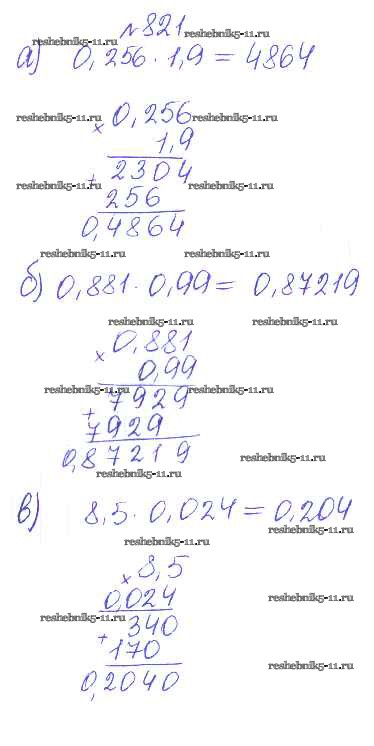 №821
reshebnik5-11.ru reshebnik5-11.ru
а) 0,256 · 1,9 = 4864
reshebnik5-11.ru × 0,256 reshebnik5-11.ru
1,9
+ 2304
reshebnik5-11.ru reshebnik5-11.ru
256
0,4864
reshebnik5-11.ru reshebnik5-11.ru
б) 0,881 · 0,99 = 0,87219
reshebnik5-11.ru reshebnik5-11.ru
× 0,881
0,99
reshebnik5-11.ru reshebnik5-11.ru
+ 7929
7929
0,87219 reshebnik5-11.ru
в) 8,5 · 0,024 = 0,204
reshebnik5-11.ru
reshebnik5-11.ru
× 8,5
0,024 reshebnik5-11.ru
reshebnik5-11.ru
+ 340
170
0,2040 reshebnik5-11.ru